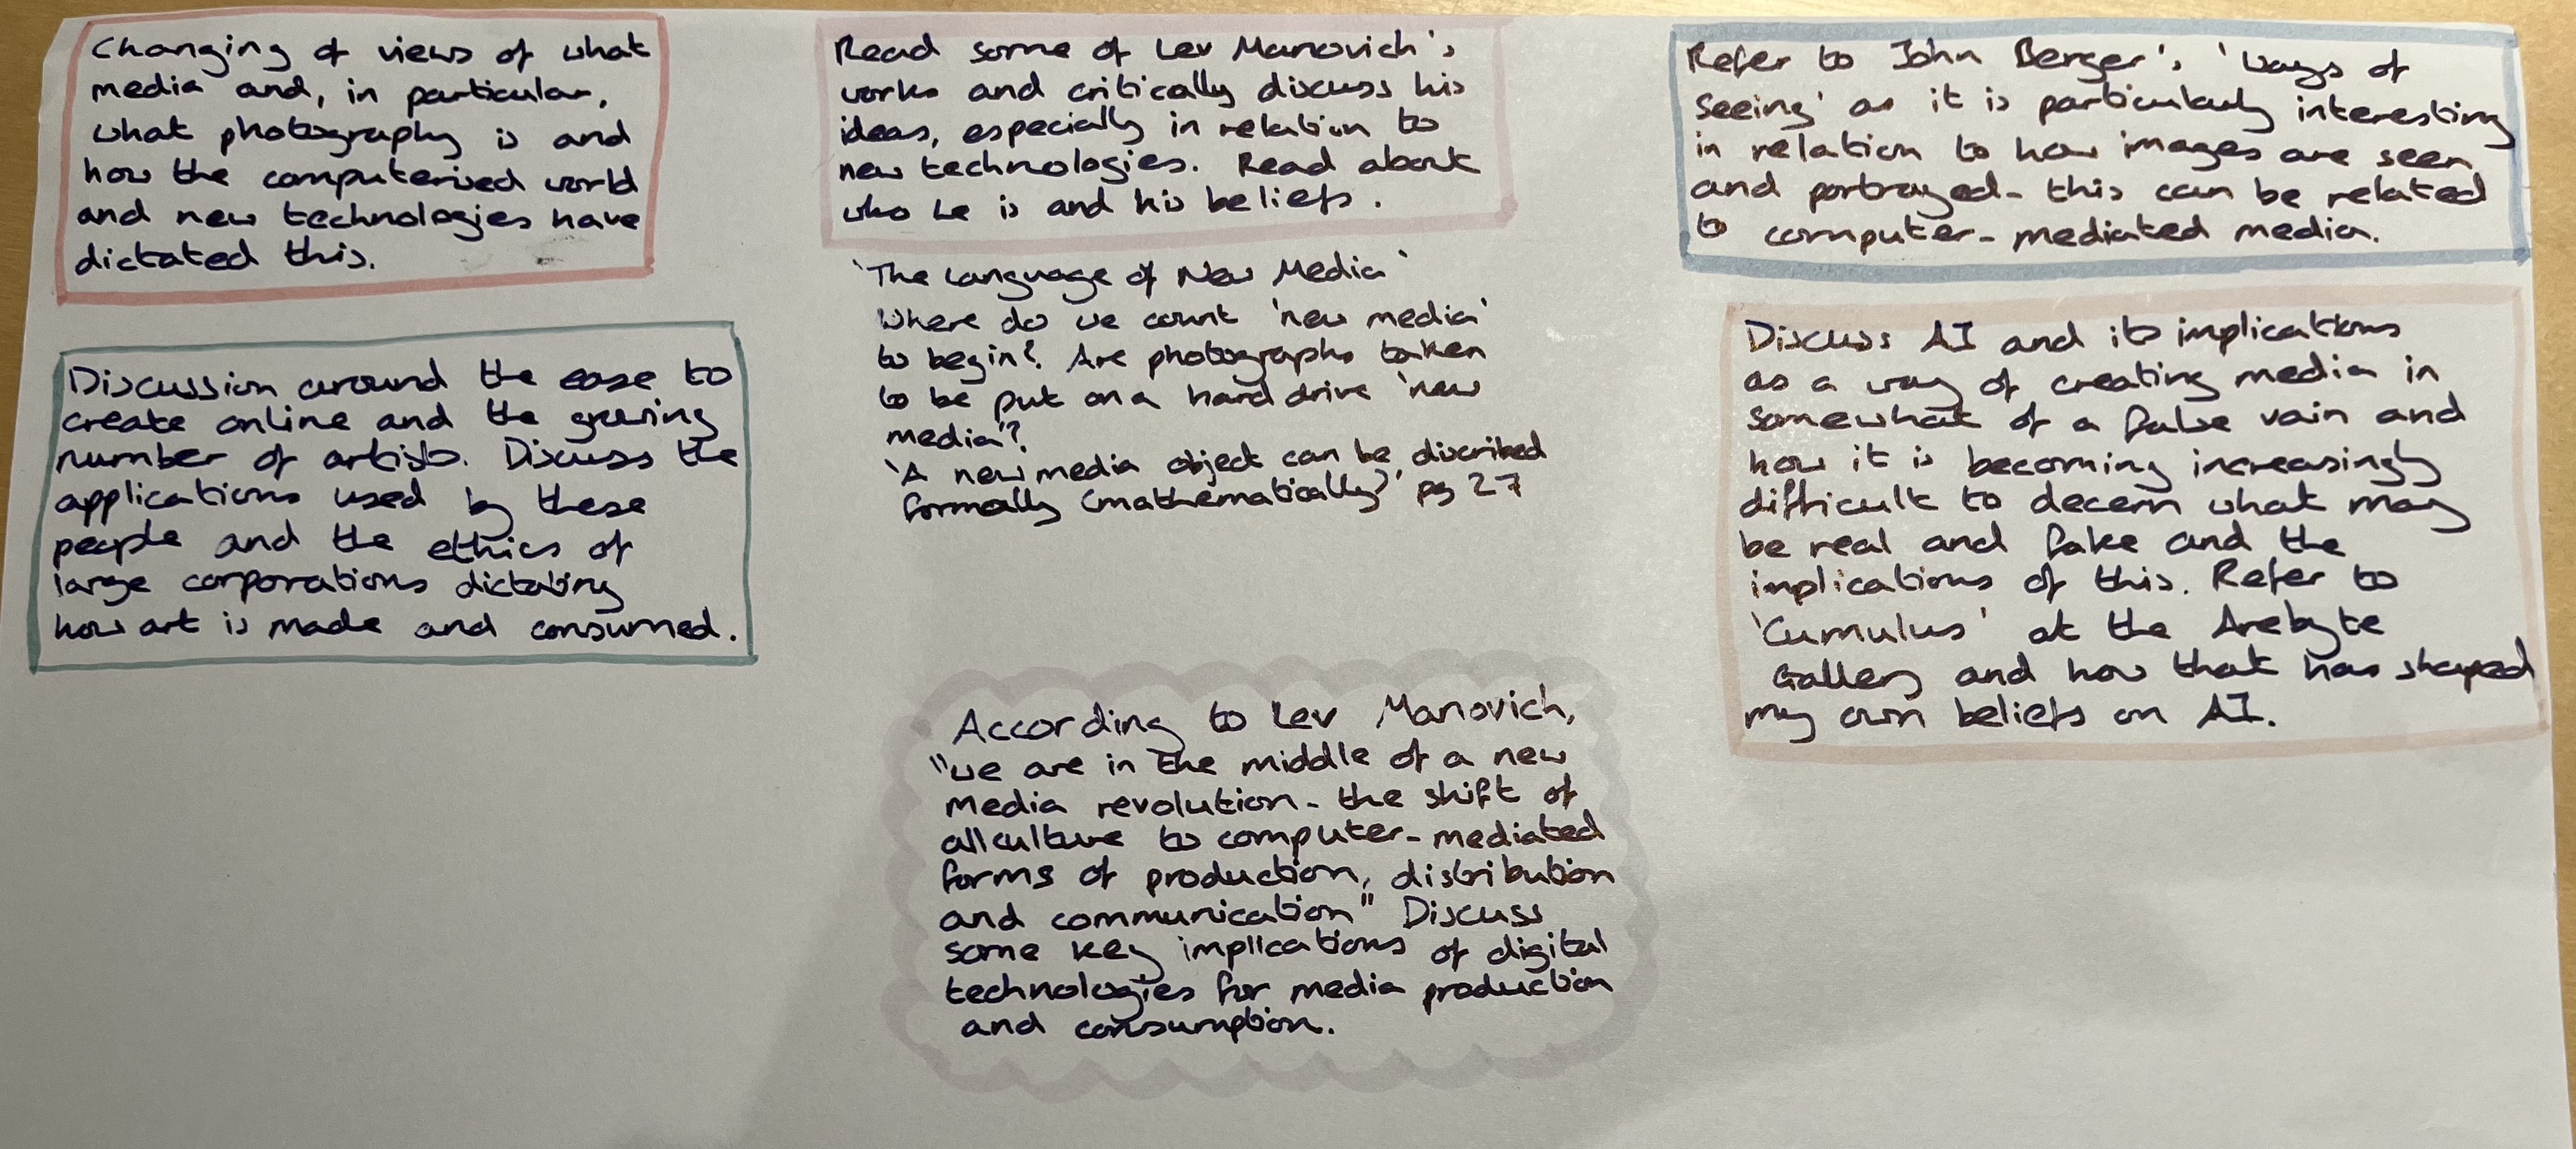 Changing of views of what
media and, in particular,
what photography is and
how the computerised world
and new technologies have
dictated this.
Discussion around the ease to
create online and the growing
number of artists. Discuss the
applications used by these
people and the ethics of
large corporations dictating
how art is made and consumed.
Read some of Lev Manovich's
works and critically discuss his
ideas, especially in relation to
new technologies. Read about
who he is and his beliefs.
'The Language of New Media'
Where do we count 'new media'
to begin? Are photographs taken
to be put on a hard drive 'new
media'?
'A new media object can be discribed
formally (mathematically)' pg 27
According to Lev Manovich,
"we are in the middle of a new
media revolution - the shift of
all culture to computer-mediated
forms of production, distribution
and communication" Discuss
some key implications of digital
technologies for media production
and consumption.
Refer to John Berger's 'Ways of
Seeing' as it is particularly interesting
in relation to how images are seen
and portrayed - this can be related
to computer-mediated media.
Discuss AI and its implications
as a way of creating media in
somewhat of a false vain and
how it is becoming increasingly
difficult to decern what may
be real and fake and the
implications of this. Refer to
'Cumulus' at the Arebyte
Gallery and how that has shaped
my own beliefs on AI.